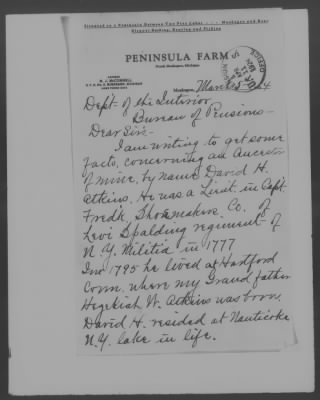 Situated on a Peninsula Between Two Fine Lakes - - - Muskegon and Bear
Elegant Boating, Bathing and Fishing
PENINSULA FARM
North Muskegon, Michigan
ADDRESS
M. J. McCONNELL
Muskegon, March 4
Dept- of the Interior
Bureau of Pensions-
Dear Sir:-
I am writing to get some
facts, concerning an Ancestor
of mine, by name David H.
Atkins. He was a Lieut. in Capt
Fredk. Shoemakers Co. of
Levi Spalding regiment- of
N.Y. Militia in 1777
In 1795 he lived at Hartford
Conn. where my Grand father
Hezekiah W. Atkins was born.
David H. resided at Nauticoke
N.Y. late in life.